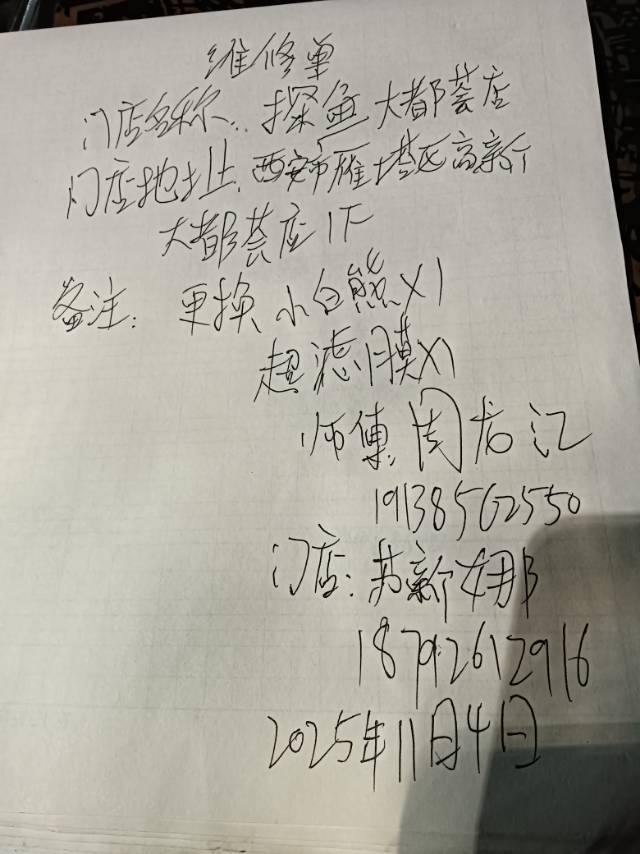 维修单
门店名称：探鱼大都荟店
门店地址：西安市雁塔区高新
大都荟店1F
备注：更换小白熊X1
超滤膜X1
师傅：周龙江
19138562550
门店：苏新娜
18792612916
2025年11月4日